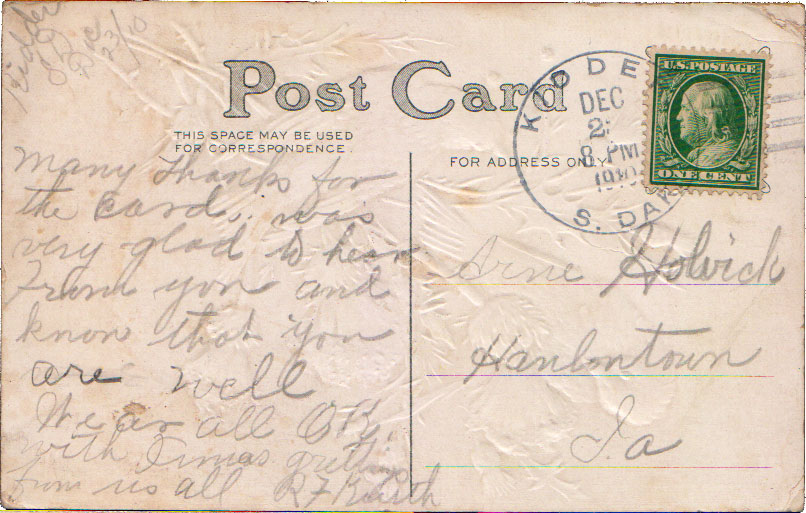 Kidder
S D
Dec
23/10
Post Card
THIS SPACE MAY BE USED
FOR CORRESPONDENCE.
FOR ADDRESS ONLY
KIDDE
DEC
2
8 PM
1910
S. DAK
U.S. POSTAGE
ONE CENT
Many thanks for
the card. was
very glad to hear
From you and
know that you
are well
We ar all OK.
with Xmas gretting
from us all R F
Arne Holvick
Hanlontown
Ia